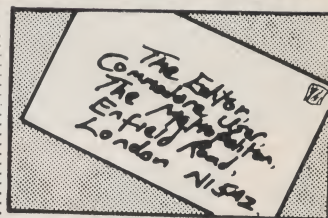 The Editor,
Commodore User,
The Metropolitan,
Enfield Road,
London N1 5AZ.